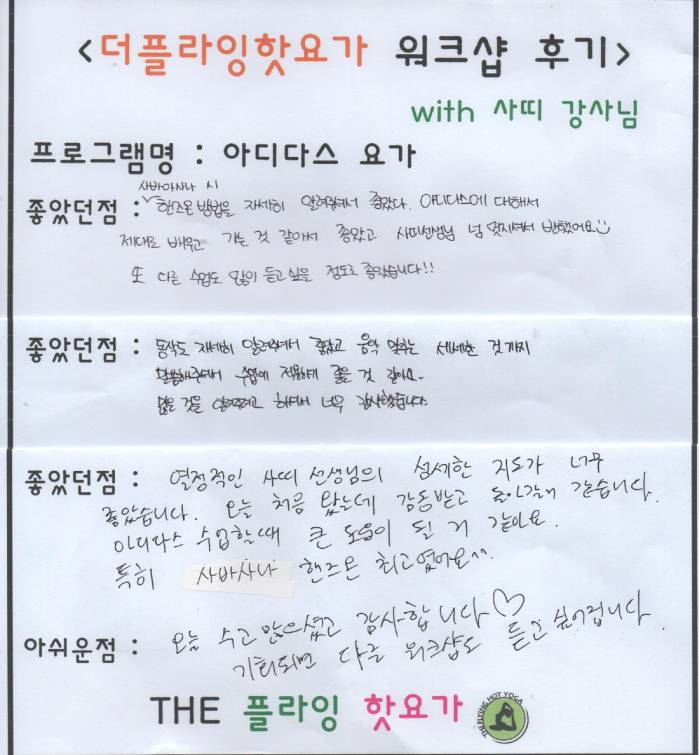 <더플라잉핫요가 워크샵 후기>
with 사띠 강사님
프로그램명 : 아디다스 요가
사바아사나 시
좋았던점 : 핸즈온 방법을 자세히 알려줘서 좋았다. 아디다스에 대해서
제대로 배우고 가는 것 같아서 좋았고 사띠선생님 넘 멋지셔서 반했어요
또 다른 수업도 많이 듣고싶을 정도로 좋았습니다!!
좋았던점 : 동작도 자세히 알려주셔서 좋았고 음악 맞추는 세세한 것까지
말씀해주셔서 수업에 적용하게 좋을 것 같아요.
많은 것을 알려주려고 하셔서 너무 감사했습니다.
좋았던점 : 열정적인 사띠 선생님의 섬세한 지도가 너무
좋았습니다. 오늘 처음 왔는데 감동받고 돌아갈거 같습니다.
아디다스 수업할때 큰 도움이 될 거 같아요.
특히 사바사나 핸즈온 최고였어요^^
아쉬운점 : 오늘 수고 많으셨고 감사합니다♡
기회되면 다른 워크샵도 듣고 싶어집니다.
THE 플라잉 핫요가
THE FLYING HOT YOGA